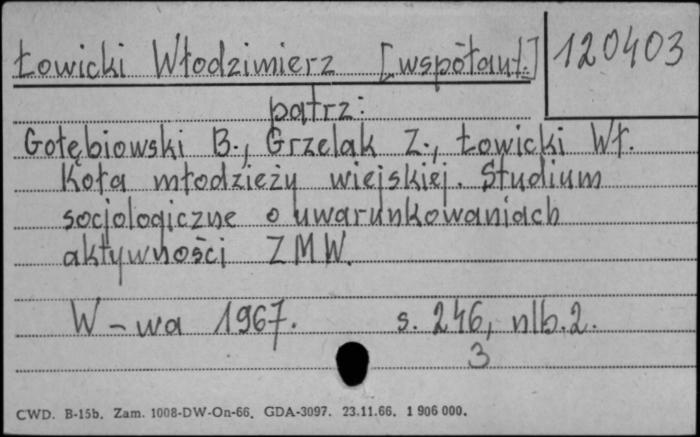 Łowicki Włodzimierz [współaut.]
120403
patrz:
Gołębiowski B., Grzelak Z., Łowicki Wł.
Koła młodzieży wiejskiej. Studium
socjologiczne o uwarunkowaniach
aktywności ZMW.
W-wa 1967. s. 246, nlb. 2.
3
CWD. B-15b. Zam. 1008-DW-On-66. GDA-3097. 23.11.66. 1 906 000.